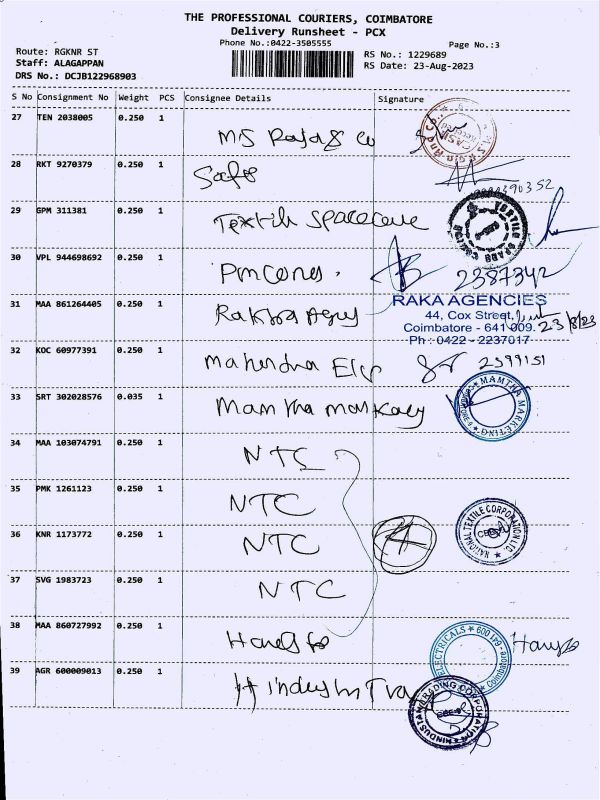 THE PROFESSIONAL COURIERS, COIMBATORE
Delivery Runsheet - PCX
Phone No.:0422-3505555
Page No.:3
Route: RGKNR ST
Staff: ALAGAPPAN
DRS No.: DCJB122968903
RS No.: 1229689
RS Date: 23-Aug-2023
S No Consignment No Weight PCS Consignee Details Signature
27 TEN 2038005 0.250 1
M/S Raja & Co
28 RKT 9270379 0.250 1
29 GPM 311381 0.250 1
Textile
30 VPL 944698692 0.250 1
2387342
31 MAA 861264405 0.250 1
RAKA AGENCIES
44, Cox Street,
Coimbatore - 641 009. 23/8/23
Ph : 0422 - 2237017
32 KOC 60977391 0.250 1
2399151
33 SRT 302028576 0.035 1
Mamtha
MAMTHA MARKETING
34 MAA 103074791 0.250 1
NTC
35 PMK 1261123 0.250 1
NTC
36 KNR 1173772 0.250 1
NTC
NATIONAL TEXTILE CORPORATION LTD.
37 SVG 1983723 0.250 1
NTC
38 MAA 860727992 0.250 1
ELECTRICALS ★ Coimbatore-641 009
39 AGR 600009013 0.250 1
HINDUSTAN TRADING CORPORATION